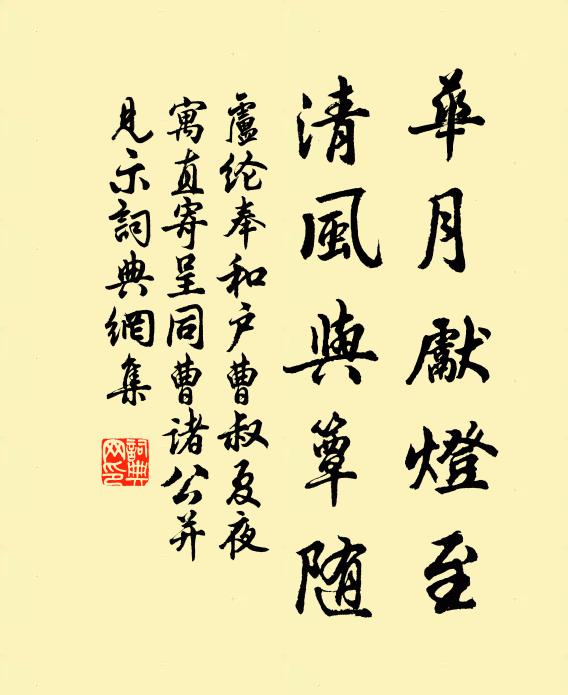 華月獻燈至
清風與簟隨
盧纶奉和户曹叔夏夜
寓直寄呈同曹诸公并
見示詞典網集
詞典
网印